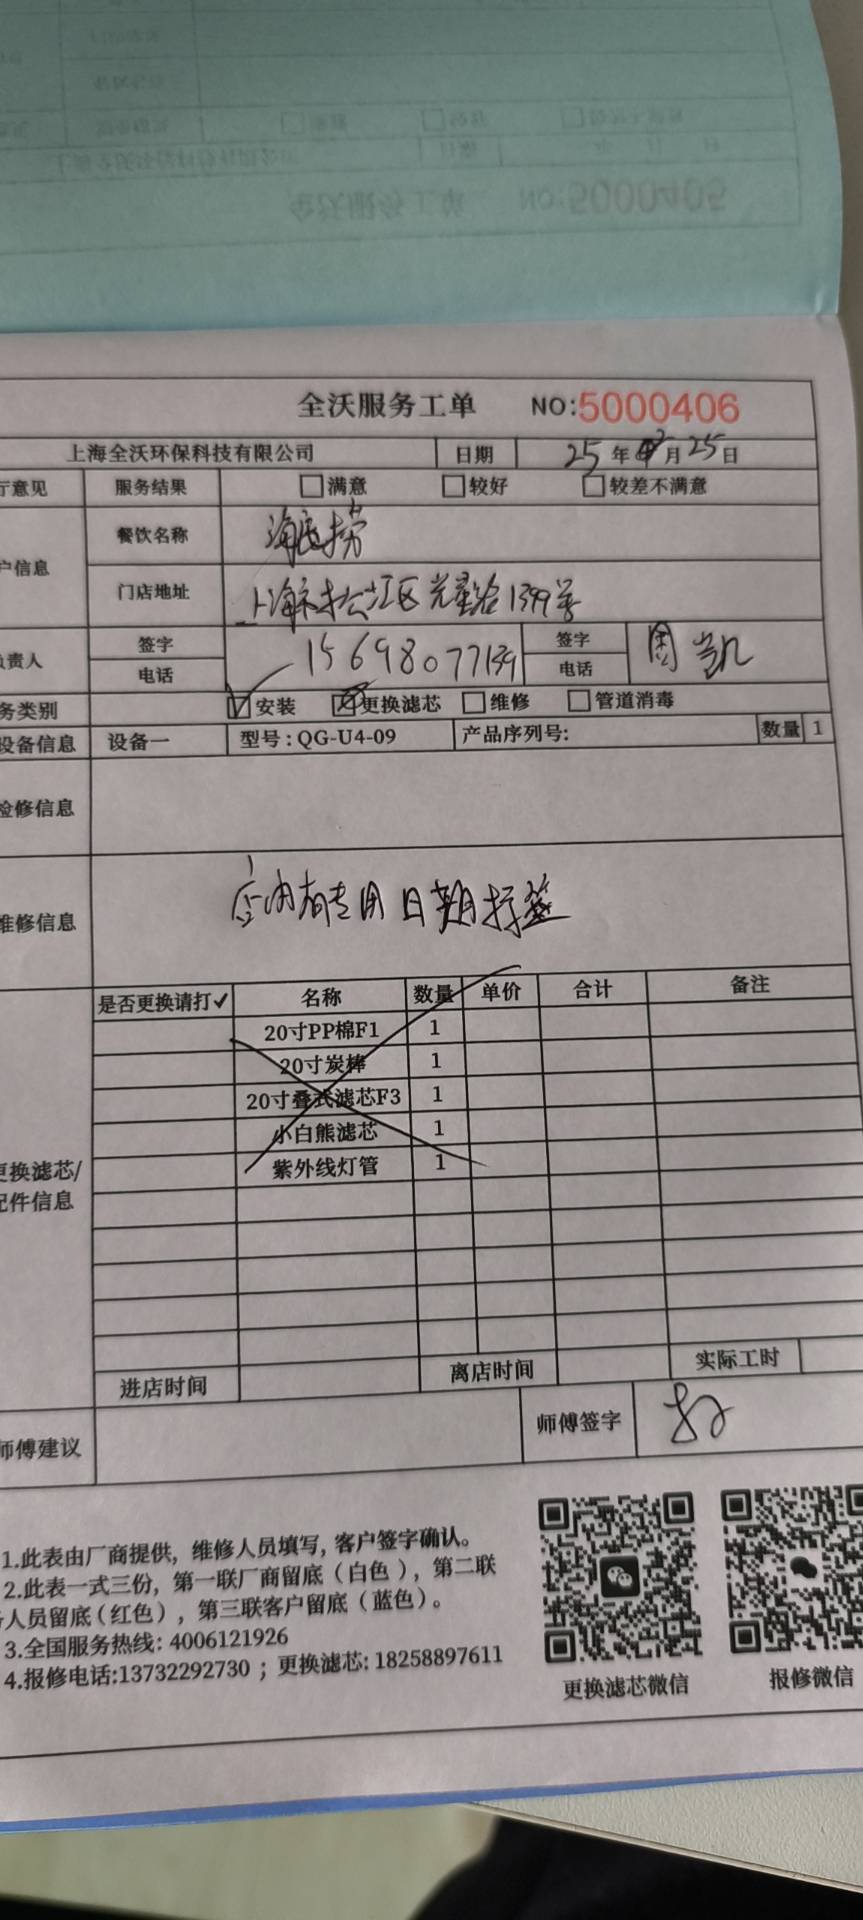 NO:5000405
全沃服务工单 NO:5000406
上海全沃环保科技有限公司 日期 25年 月25日
厅意见 服务结果 满意 较好 较差不满意
户信息 餐饮名称 海底捞
门店地址 上海市松江区 1399号
负责人 签字 签字 周凯
电话 15698077139 电话
务类别 安装 更换滤芯 维修 管道消毒
设备信息 设备一 型号:QG-U4-09 产品序列号: 数量 1
检修信息
维修信息 店内有专用日期标签
是否更换请打✓ 名称 数量 单价 合计 备注
20寸PP棉F1 1
20寸炭棒 1
20寸叠式滤芯F3 1
小白熊滤芯 1
紫外线灯管 1
更换滤芯/
配件信息
进店时间 离店时间 实际工时
师傅建议 师傅签字
1.此表由厂商提供, 维修人员填写, 客户签字确认。
2.此表一式三份, 第一联厂商留底(白色), 第二联
务人员留底(红色), 第三联客户留底(蓝色)。
3.全国服务热线: 4006121926
4.报修电话:13732292730 ; 更换滤芯: 18258897611
更换滤芯微信 报修微信